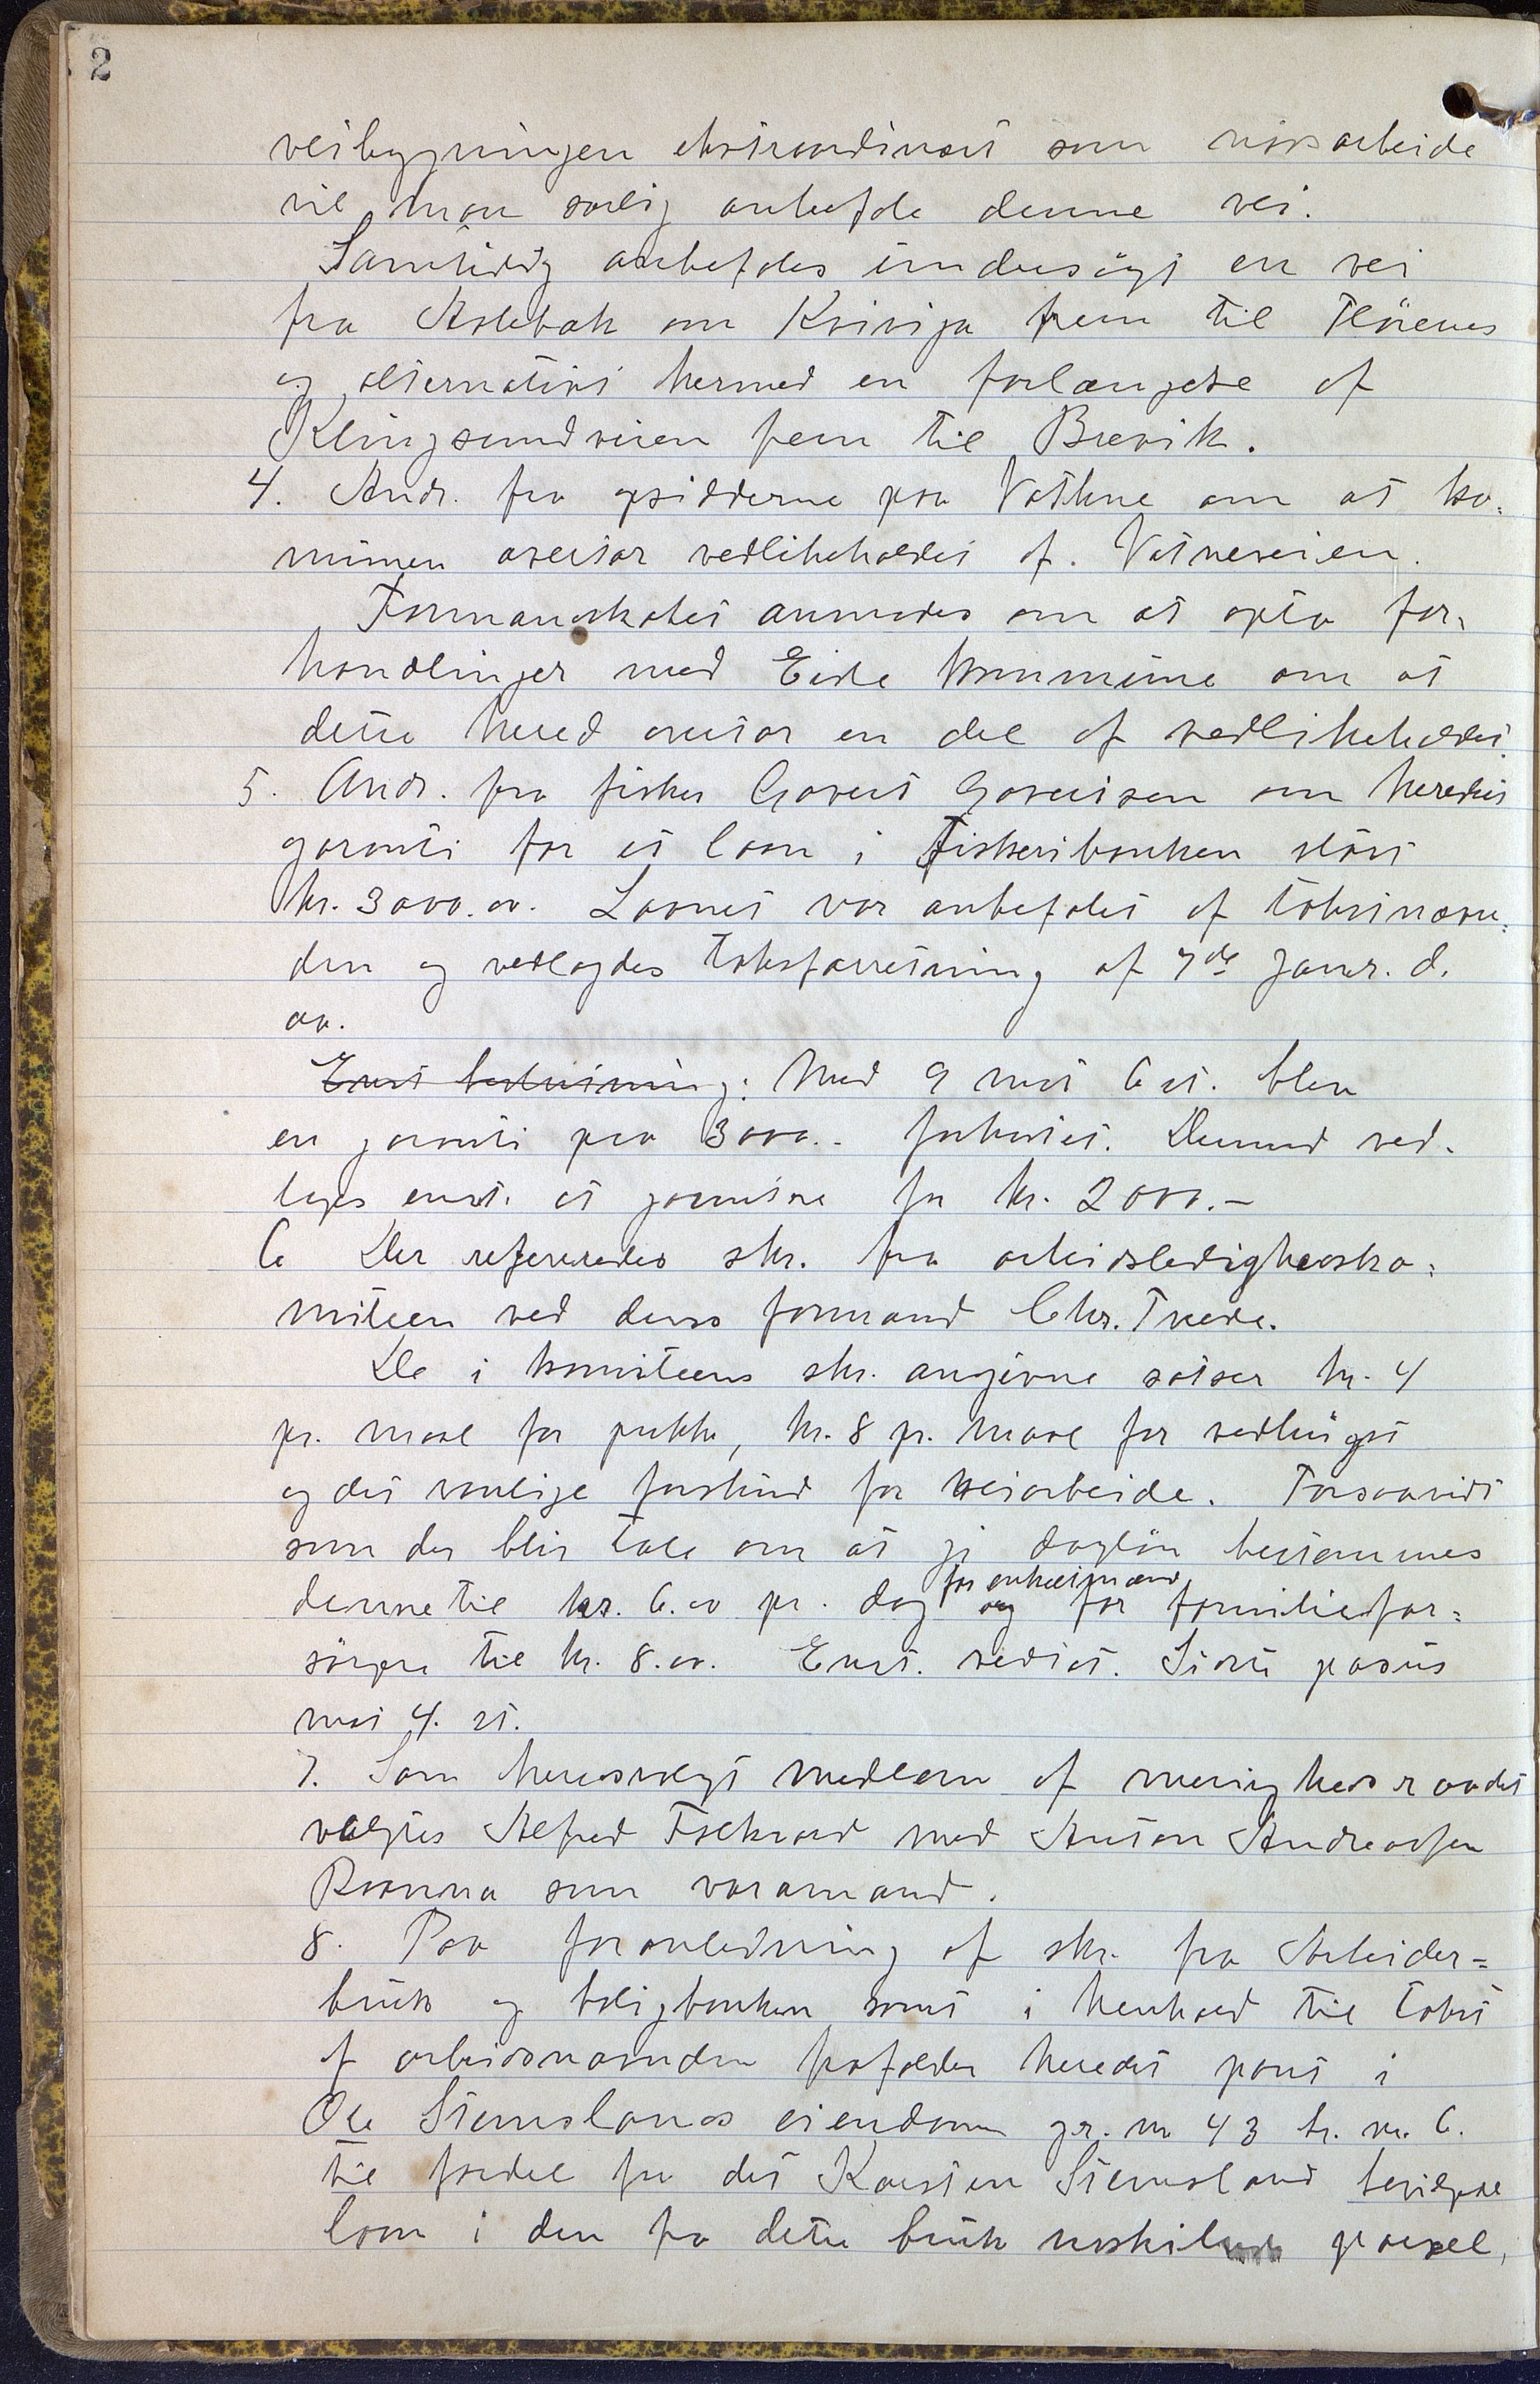 2
veibygningen ekstraordinært som nødsarbeide
vil man særlig anbefale denne vei.
Samtidig anbefales undersøgt en vei
fra Aslebak om Kviviga frem til Flørenes
og alternativt hermed en forlængelse af
Klingsundveien frem til Brevik.
4. Andr. fra opsidderne paa Vathne om at ko-
munen overtar vedlikeholdet af Vatneveien.
Formandskabet anmodes om at opta for-
handlinger med Eide kommune om at
dette hered overtar en del af vedlikeholdet.
5. Andr. fra fisker Govert Govertsen om heredets
garanti for et laan i Fiskeribanken stort
kr. 3000.00. Laanet var anbefalet af takstnævn-
den og vedlagdes takstforretning af 7de januar d.
aa.
Enst. beslutning: Med 9 mot 6 st. blev
en garanti paa 3000.- forkastet. Derimod ved-
toges enst. at garantere for kr. 2000.-
6 Der refereredes skr. fra arbeidsledighedsko-
miteen ved dens formand Chr. Tvede.
De i komiteens skr. angivne satser kr. 4
pr. maal for pukk, kr. 8 pr. maal for vedhugst
og det vanlige forskud for veiarbeide. Forsaavidt
som der blir tale om at gi dagløn bestemmes
denne til kr. 6.00 pr. dag for enkeltmænd og for familiefor-
sørgere til kr. 8.00. Enst. vedtat. Siste passus
mot 4. st.
7. Som heredsvalgt medlem af menighedsraadet
valgtes Alfred Fselvard med Anton Andreassen
Roanna som varamand.
8. Paa foranledning af skr. fra Arbeider-
bruk og boligbanken samt i henhold til takst
af arbeidsnævnden frafalder heredet pant i
Ole Stemslands eiendom gr. nr 43 br. nr. 6.
til fordel for det Karsten Stemsland bevilgede
laan i den fra dette bruk utskilte parsel,